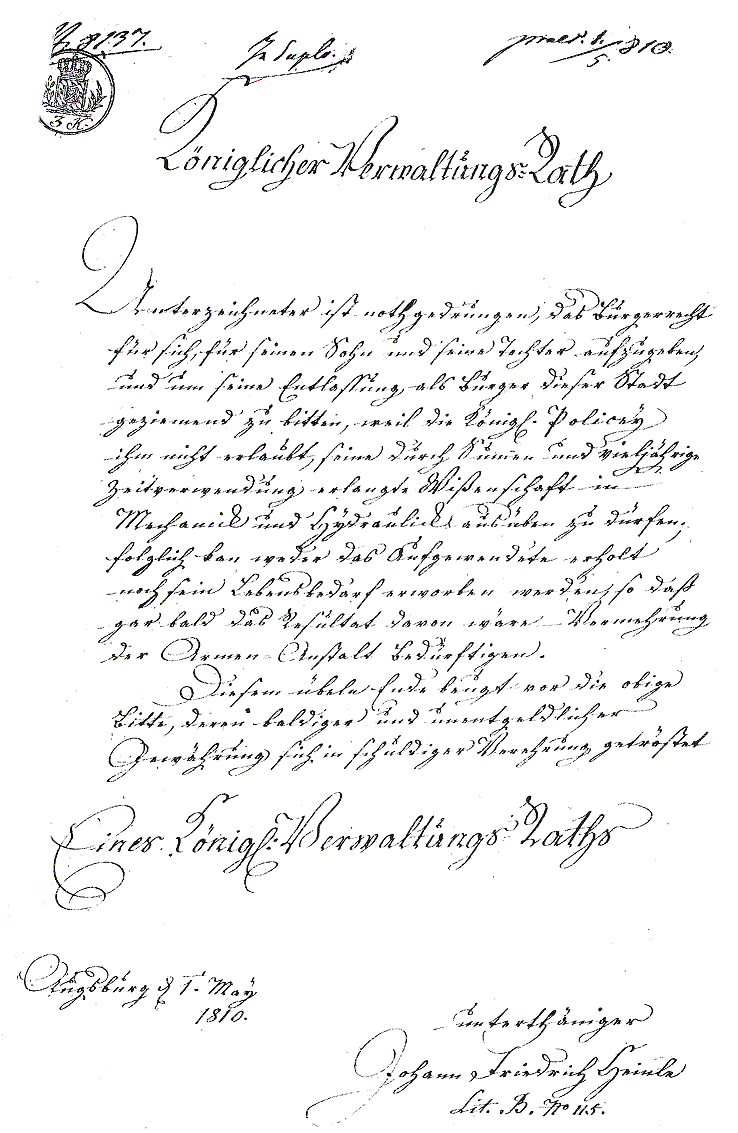 N. 8137.
In duplo.
praes. 1./5. 1810.
3 K.
Königlicher Verwaltungs-Rath
Unterzeichneter ist nothgedrungen, das Bürgerrecht
für sich, für seinen Sohn und seine Tochter aufzugeben,
und um seine Entlassung als Bürger dieser Stadt
geziemend zu bitten, weil die Königl. Policey
ihm nicht erlaubt, seine durch Sum̅en und vieljährige
Zeitverwendung erlangte Wißenschaft in
Mechanick und Hydraulick ausüben zu dürfen;
folglich kan weder das Aufgewendete erholt
noch sein Lebensbedarf erworben werden, so daß
gar bald das Resultat davon wäre Vermehrung
der Armen-Anstalt Bedürftigen.
Diesem übeln Ende beugt vor die obige
Bitte, deren baldiger und unentgeldlicher
Gewährung sich in schuldiger Verehrung getröstet
Eines Königl: Verwaltungs-Raths
Augsburg d. 1. May
1810.
unterthäniger
Johann Friedrich Heinle
Lit. B. No 115.